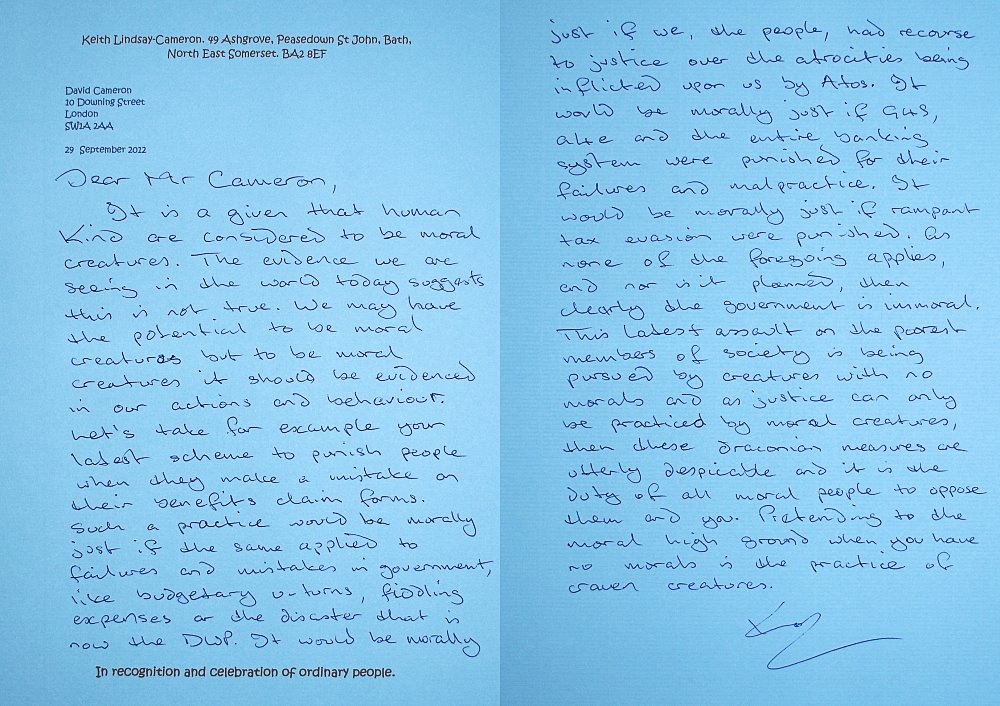 Keith Lindsay-Cameron. 49 Ashgrove, Peasedown St John, Bath,
North East Somerset. BA2 8EF
David Cameron
10 Downing Street
London
SW1A 2AA
29 September 2012
Dear Mr Cameron,
It is a given that human
kind are considered to be moral
creatures. The evidence we are
seeing in the world today suggests
this is not true. We may have
the potential to be moral
creatures but to be moral
creatures it should be evidenced
in our actions and behaviour.
Let's take for example your
latest scheme to punish people
when they make a mistake on
their benefits claim forms.
Such a practice would be morally
just if the same applied to
failures and mistakes in government,
like budgetary u-turns, fiddling
expenses or the disaster that is
now the DWP. It would be morally
In recognition and celebration of ordinary people.
just if we, the people, had recourse
to justice over the atrocities being
inflicted upon us by Atos. It
would be morally just if G4S,
a4e and the entire banking
system were punished for their
failures and malpractice. It
would be morally just if rampant
tax evasion were punished. As
none of the foregoing applies,
and nor is it planned, then
clearly the government is immoral.
This latest assault on the poorest
members of society is being
pursued by creatures with no
morals and as justice can only
be practiced by moral creatures,
then these draconian measures are
utterly despicable and it is the
duty of all moral people to oppose
them and you. Pretending to the
moral high ground when you have
no morals is the practice of
craven creatures.